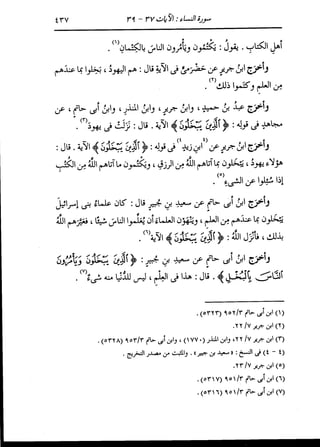 سورة النساء : الآيات ٣٧ - ٣٩ ٤٣٧
أهل الكتاب . يقول : يكتمون ويأمرون الناس بالكتمان(١) .
وأخرج ابنُ جريرٍ عن حضرميٍّ فى الآية قال : هم اليهود ، بخلوا بما عندهم
من العلم وكتموا ذلك(٢) .
وأخرج عبدُ بنُ حميدٍ ، وابنُ جريرٍ ، وابنُ المنذرِ ، وابنُ أبى حاتمٍ ، عن
مجاهدٍ فى قوله : ﴿ الَّذِينَ يَبْخَلُونَ ﴾ الآية . قال : نزَلت فى يهودَ(٣) .
وأخرج ابنُ جريرٍ عن (٤ابنِ زيدٍ٤) فى قوله : ﴿ الَّذِينَ يَبْخَلُونَ ﴾ الآية . قال :
هؤلاء يهودُ ، يبخلون بما آتاهم اللهُ من الرزقِ ، ويكتمون ما آتاهم اللهُ من الكتبِ
إذا سُئلوا عن الشىءِ(٥) .
وأخرج ابنُ أبى حاتمٍ عن سعيدِ بنِ جبيرٍ قال : كان علماءُ بنى إسرائيلَ
يبخلون بما عندهم من العلمِ ، وينهَون العلماءَ أن يُعلِّموا الناسَ شيئًا ، فعيَّرهم اللهُ
بذلك ، فأنزَل اللهُ : ﴿ الَّذِينَ يَبْخَلُونَ ﴾ الآية(٦) .
وأخرج ابنُ أبى حاتمٍ عن سعيدِ بنِ جبيرٍ : ﴿ الَّذِينَ يَبْخَلُونَ وَيَأْمُرُونَ
النَّاسَ بِالْبُخْلِ ﴾ . قال : هذا فى العلمِ ، ليس للدنيا منه شىءٌ(٧) .
(١) ابن أبى حاتم ٩٥٢/٣ (٥٣٢٣) .
(٢) ابن جرير ٢٢/٧ .
(٣) ابن جرير ٢٢/٧ ، وابن المنذر (١٧٧٠) ، وابن أبى حاتم ٩٥٣/٣ (٥٣٢٨) .
(٤ - ٤) فى النسخ : « سعيد بن جبير » . والمثبت من مصدر التخريج .
(٥) ابن جرير ٢٣/٧ .
(٦) ابن أبى حاتم ٩٥١/٣ (٥٣١٧) .
(٧) ابن أبى حاتم ٩٥١/٣ (٥٣١٦) .